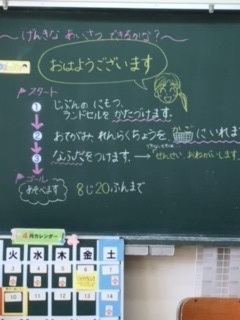 ～げんきな あいさつ できるかな?～
おはようございます
スタート
1 じぶんの にもつ、
ランドセルを かたづけます。
2 おてがみ、れんらくちょうを かごに いれます
3 なふだを つけます。→「せんせい おねがいします。
ゴール
あそべます
8じ20ぷんまで
月カレンダー
火 水 木 金 土